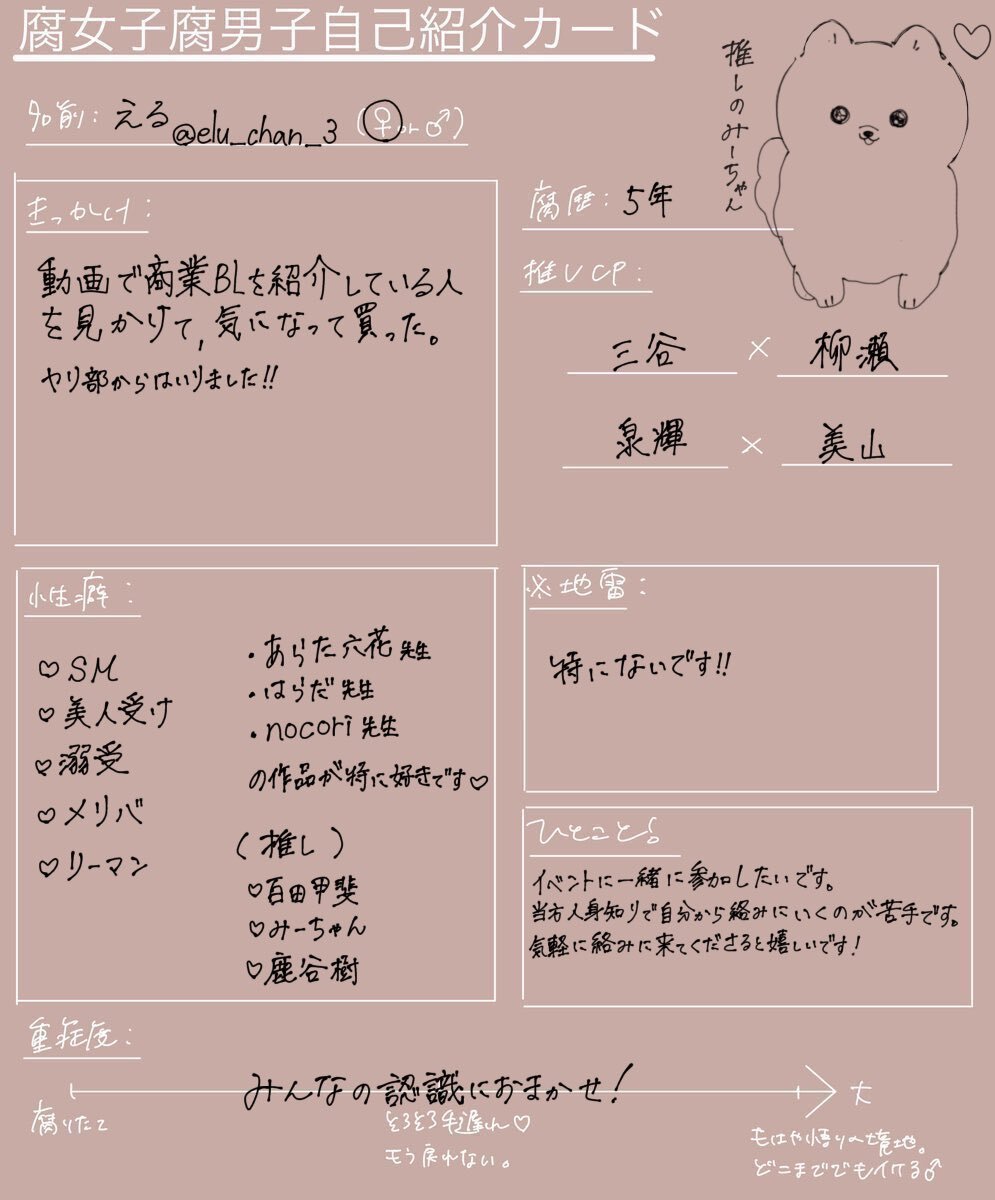 腐女子腐男子自己紹介カード
名前: える@elu_chan_3 (♀or♂)
推しのみーちゃん
きっかけ:
動画で商業BLを紹介している人
を見かけて,気になって買った。
ヤリ部からはいりました!!
腐歴: 5年
推しCP:
三谷 × 柳瀬
泉輝 × 美山
性癖:
♡SM
♡美人受け
♡溺受
♡メリバ
♡リーマン
・あらた六花先生
・はらだ先生
・nocori先生
の作品が特に好きです♡
(推し)
♡百田甲斐
♡みーちゃん
♡鹿谷樹
※地雷:
特にないです!!
ひとこと!
イベントに一緒に参加したいです。
当方人身知りで自分から絡みにいくのが苦手です。
気軽に絡みに来てくださると嬉しいです!
重症度:
みんなの認識におまかせ!
大
腐りたて
そろそろ手遅れ♡
もう戻れない。
もはや悟りの境地。
どこまででもイケる♂